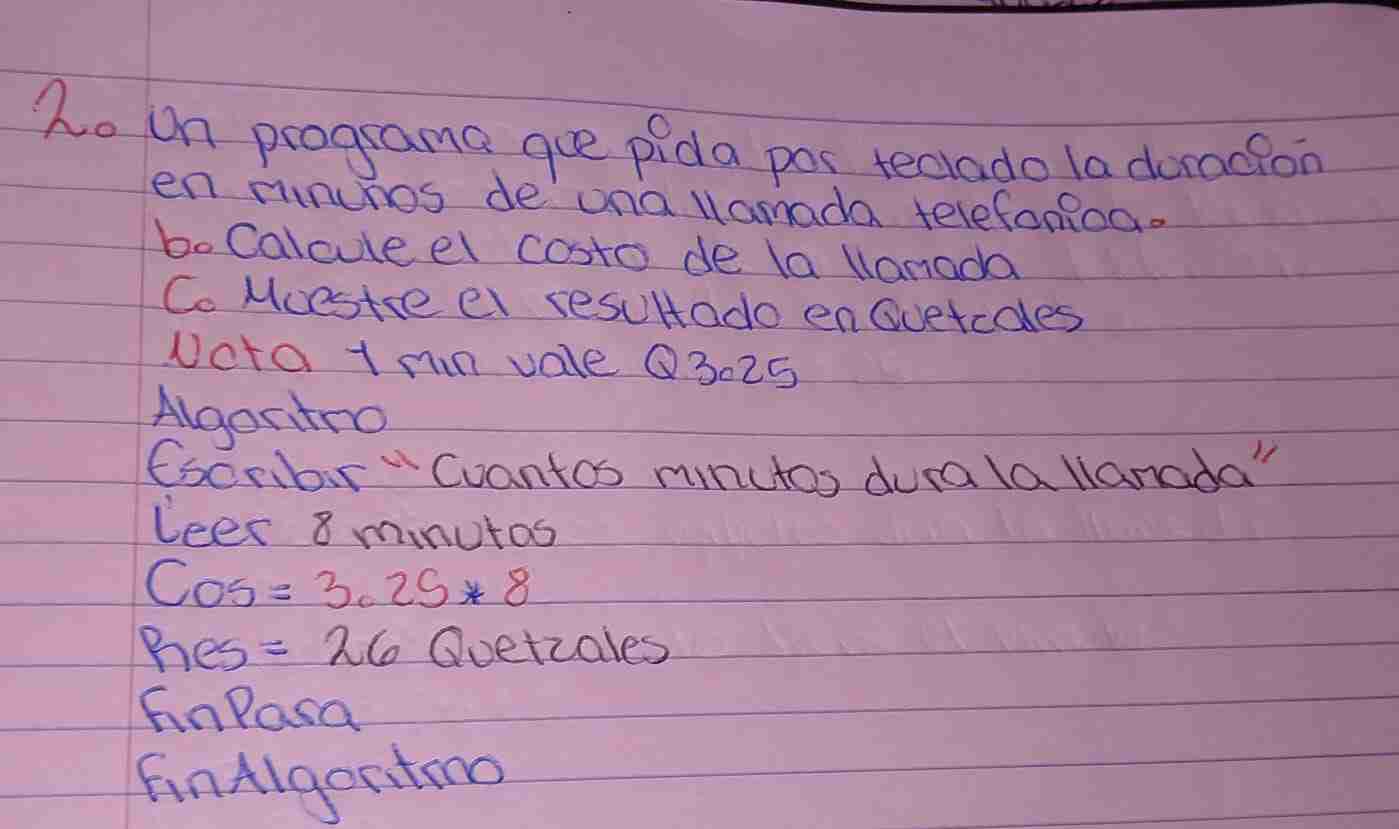 2. Un programa que pida por teclado la duración
en minutos de una llamada telefonica.
b. Calcule el costo de la llamada
C. Muestre el resultado en Quetzales
Nota 1 min vale Q3.25
Algoritmo
Escribir "Cuantos minutos dura la llamada"
Leer 8 minutos
Cos = 3.25 * 8
Res = 26 Quetzales
FinPara
FinAlgoritmo